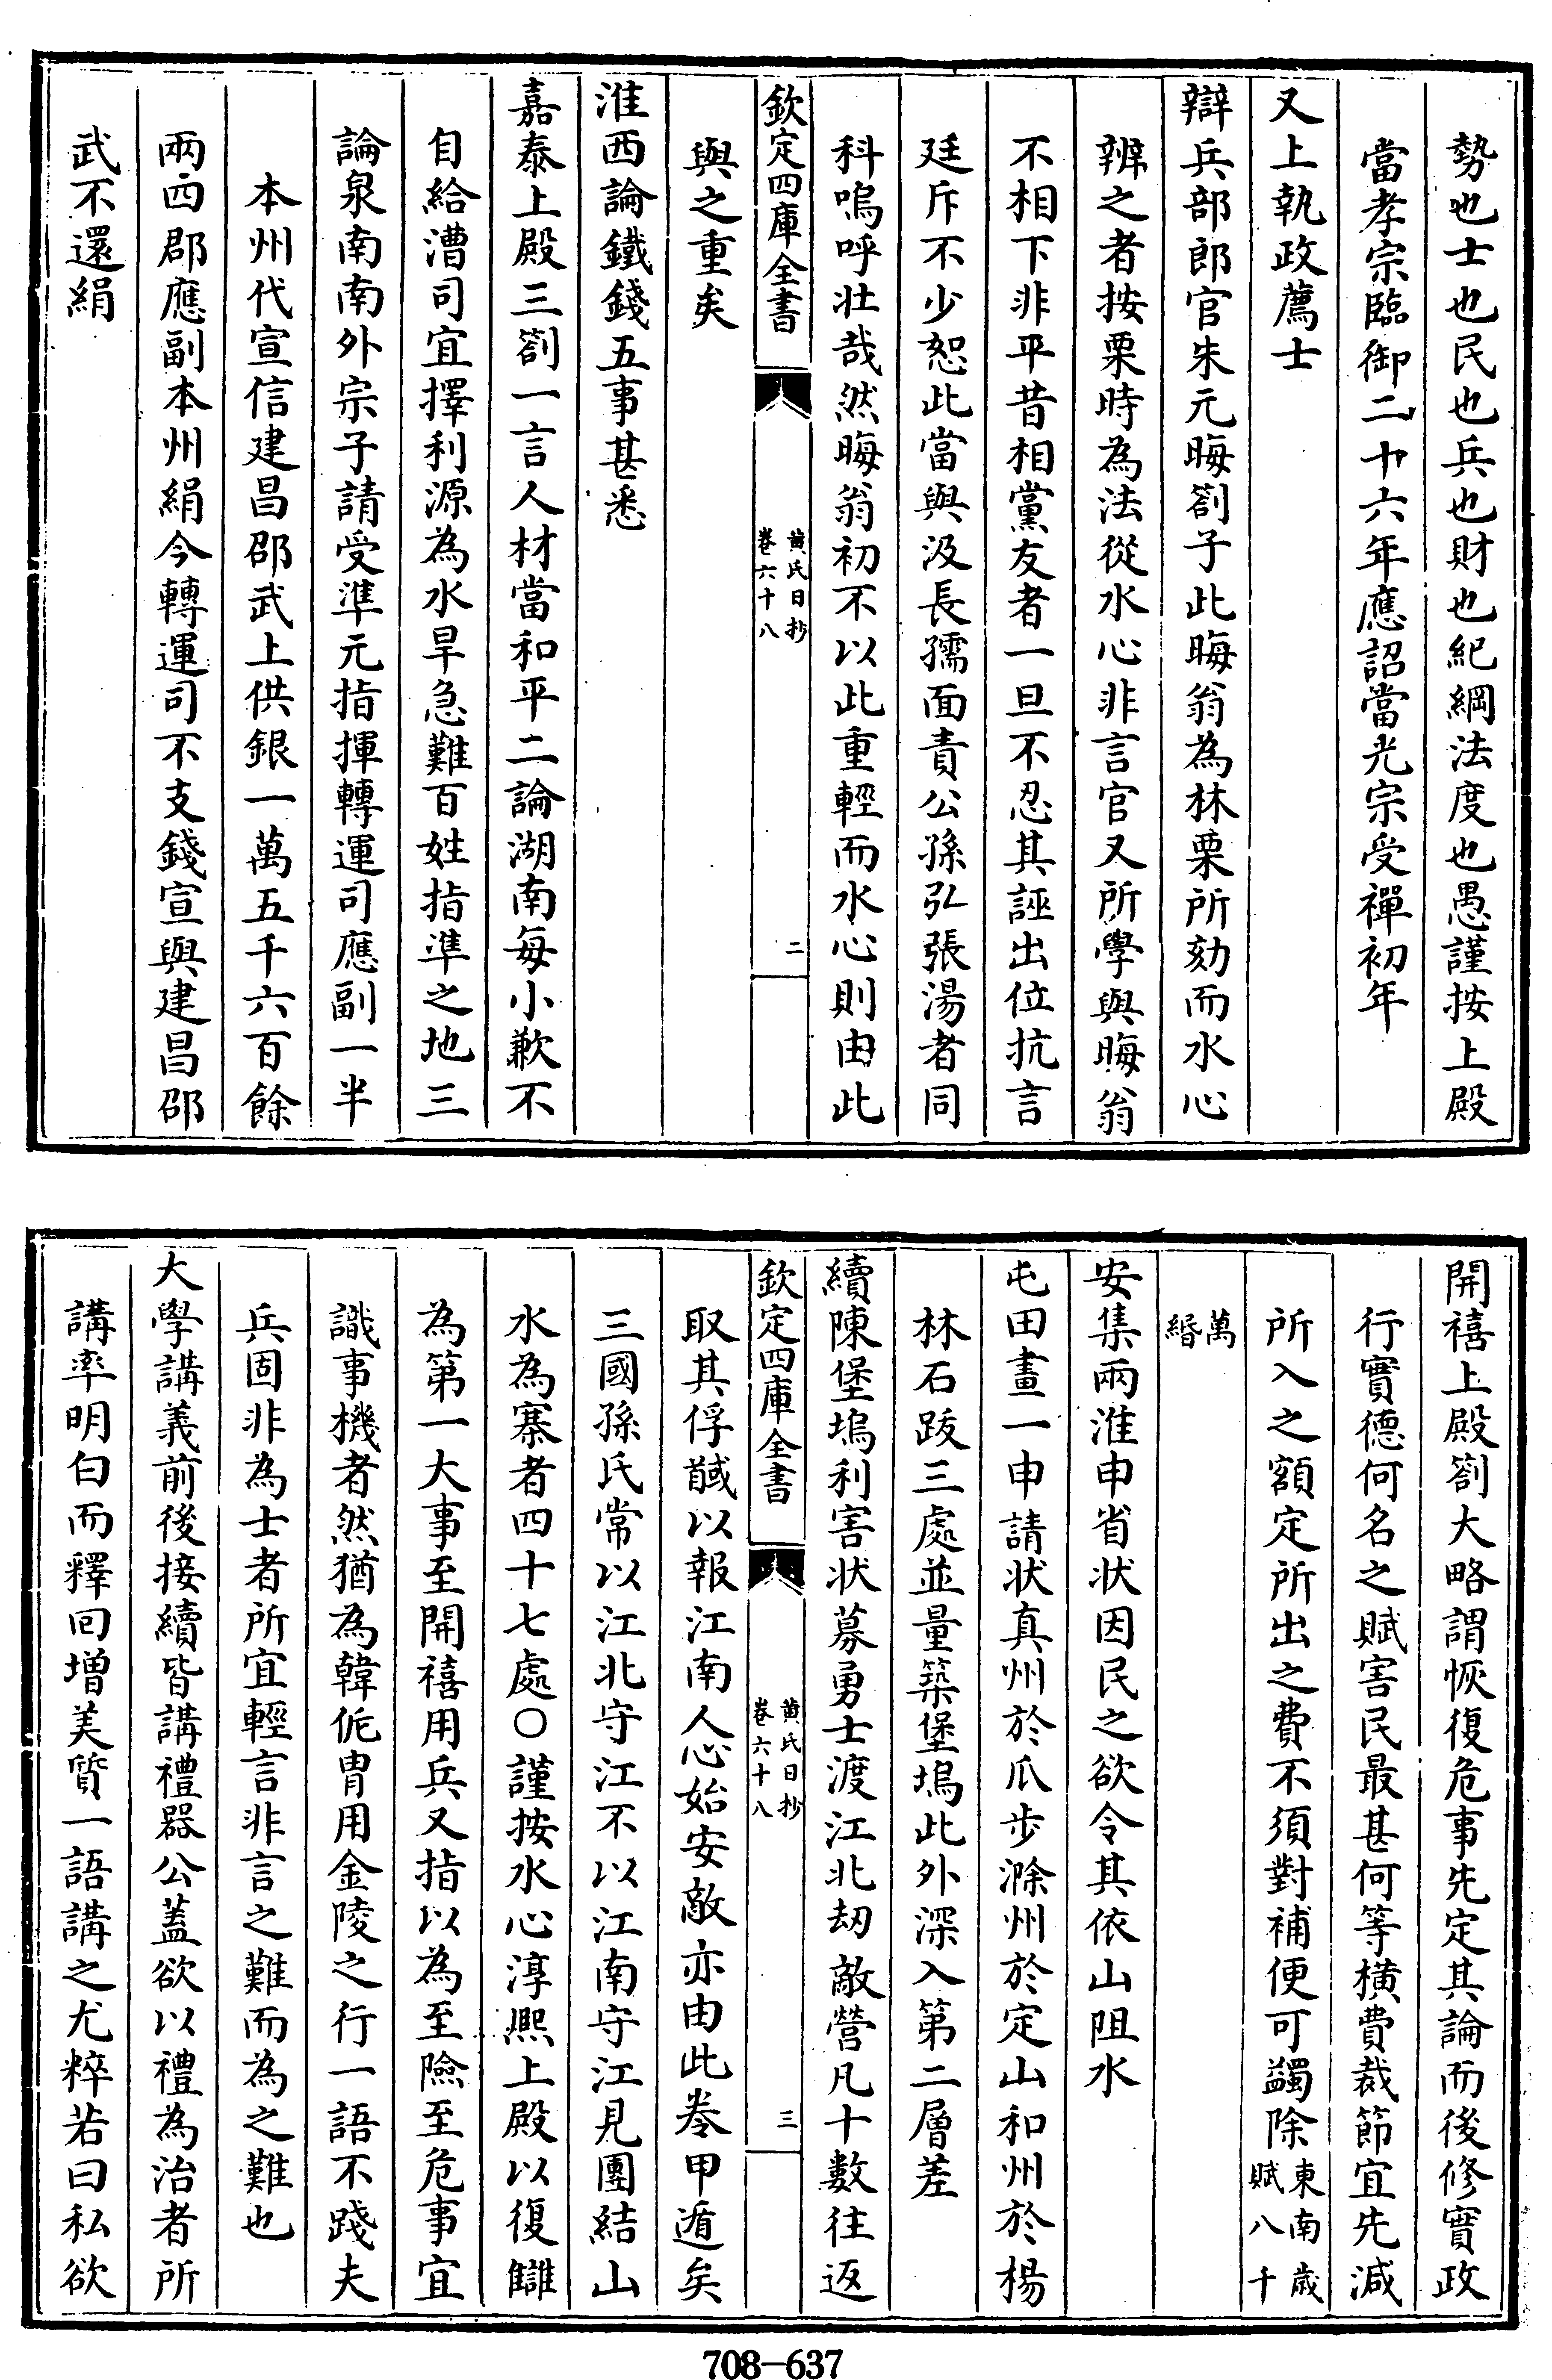 勢也士也民也兵也財也紀綱法度也愚謹按上殿
當孝宗臨御二十六年應詔當光宗受禪初年
又上執政薦士
辯兵部郎官朱元晦劄子此晦翁為林栗所劾而水心
辨之者按栗時為法從水心非言官又所學與晦翁
不相下非平昔相黨友者一旦不忍其誣出位抗言
廷斥不少恕此當與汲長孺面責公孫弘張湯者同
科嗚呼壯哉然晦翁初不以此重輕而水心則由此
欽定四庫全書
黄氏日抄
卷六十八
二
與之重矣
淮西論鐵錢五事甚悉
嘉泰上殿三劄一言人材當和平二論湖南每小歉不
自給漕司宜擇利源為水旱急難百姓指準之地三
論泉南南外宗子請受準元指揮轉運司應副一半
本州代宣信建昌邵武上供銀一萬五千六百餘
兩四郡應副本州絹今轉運司不支錢宣與建昌邵
武不還絹
開禧上殿劄大略謂恢復危事先定其論而後修實政
行實德何名之賦害民最甚何等橫費裁節宜先減
所入之額定所出之費不須對補便可蠲除東南歲
賦八千
萬
緡
安集兩淮申省狀因民之欲令其依山阻水
屯田畫一申請狀真州於瓜步滁州於定山和州於楊
林石跋三處並量築堡塢此外深入第二層差
續陳堡塢利害狀募勇士渡江北刼敵營凡十數往返
欽定四庫全書
黄氏日抄
卷六十八
三
取其俘馘以報江南人心始安敵亦由此卷甲遁矣
三國孫氏常以江北守江不以江南守江見團結山
水為寨者四十七處〇謹按水心淳熙上殿以復讎
為第一大事至開禧用兵又指以為至險至危事宜
識事機者然猶為韓侂胄用金陵之行一語不踐夫
兵固非為士者所宜輕言非言之難而為之難也
大學講義前後接續皆講禮器公蓋欲以禮為治者所
講率明白而釋回增美質一語講之尤粹若曰私欲
708-637